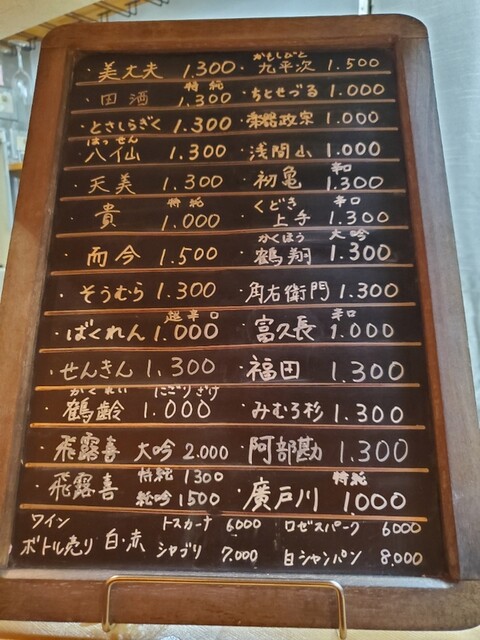 ・美丈夫 1.300
・田酒 特純 1.300
・とさしらぎく 1.300
・八仙 はっせん 1.300
・天美 1.300
・貴 特純 1.000
・而今 1.500
・そうむら 1.300
・ばくれん 超辛口 1.000
・せんきん 1.300
・鶴齢 かくれい にごりざけ 1.000
・飛露喜 大吟 2.000
・飛露喜 特純 1300
純吟 1500
・九平次 かもしびと 1.500
・ちとせづる 1.000
政宗 1.000
・浅間山 1.000
・初亀 辛口 1.300
・くどき上手 辛口 1.300
・鶴翔 かくほう 大吟 1.300
・角右衛門 1.300
・富久長 辛口 1.000
・福田 1.300
・みむろ杉 1.300
・阿部勘 1.300
・廣戸川 特純 1.000
ワイン
ボトル売り 白・赤
トスカーナ 6000 ロゼスパーク 6000
シャブリ 7.000 白シャンパン 8,000